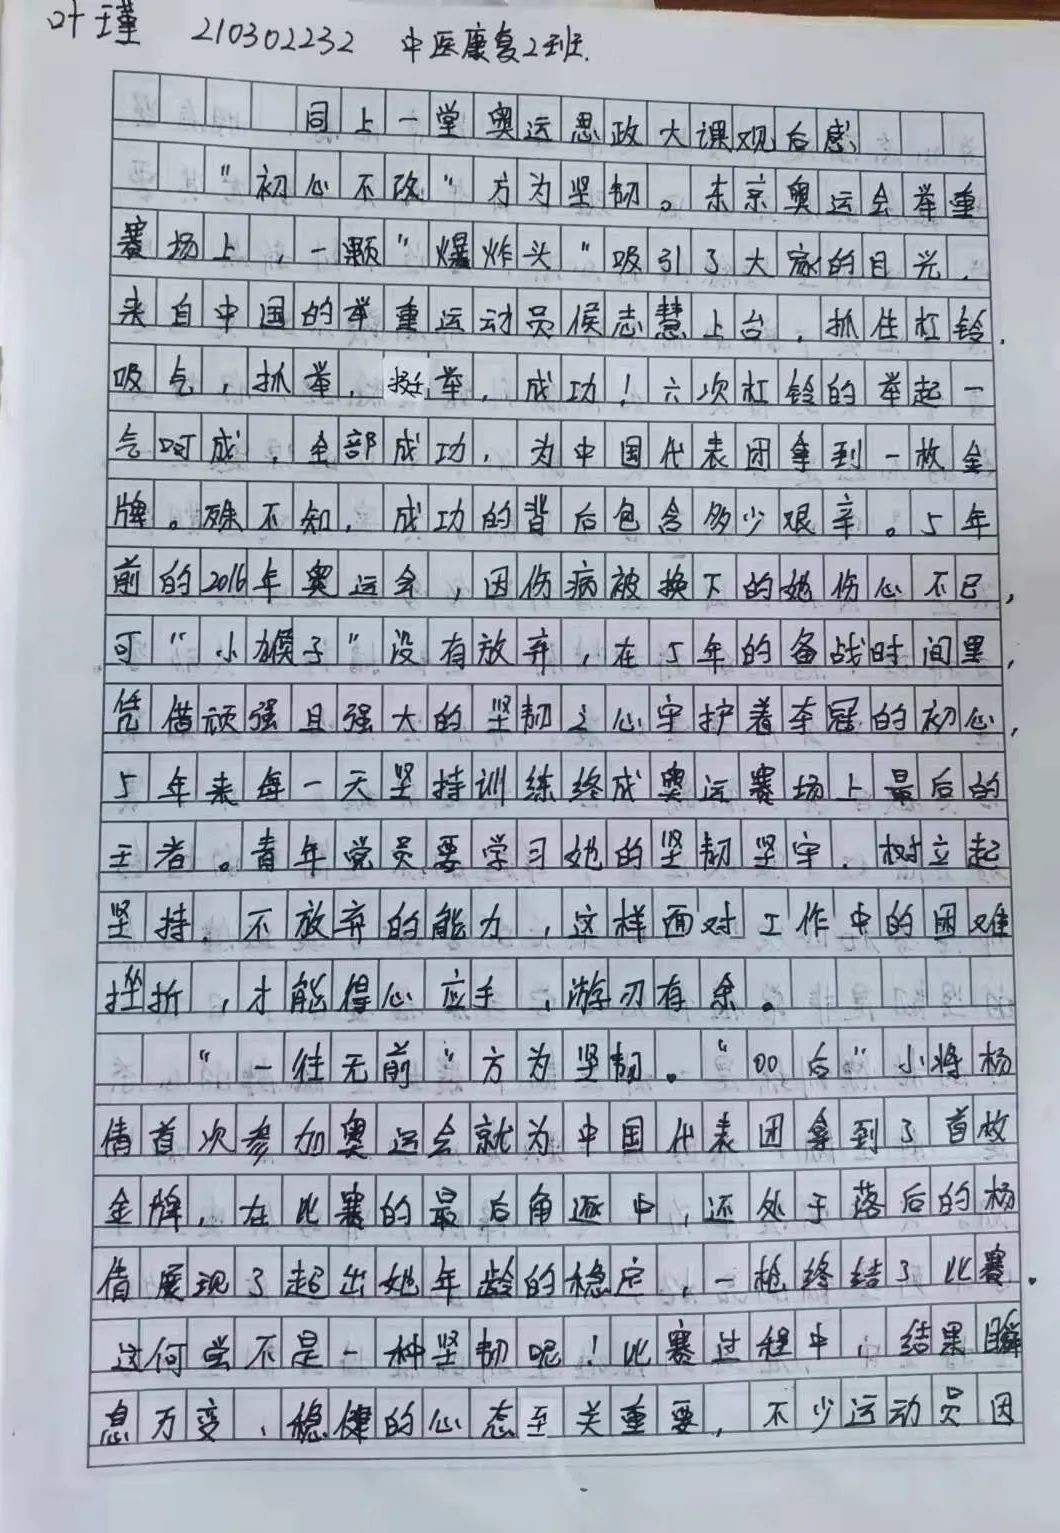 叶瑾 210302232 中医康复2班.
同上一堂奥运思政大课观后感
"初心不改"方为坚韧。东京奥运会举重
赛场上，一颗"爆炸头"吸引了大家的目光，
来自中国的举重运动员侯志慧上台，抓住杠铃，
吸气，抓举，挺举，成功！六次杠铃的举起一
气呵成，全部成功，为中国代表团拿到一枚金
牌。殊不知，成功的背后包含多少艰辛。5年
前的2016年奥运会，因伤病被换下的她伤心不已，
可"小猴子"没有放弃，在5年的备战时间里，
凭借顽强且强大的坚韧之心守护着夺冠的初心，
5年来每一天坚持训练终成奥运赛场上最后的
王者。青年党员要学习她的坚韧坚守，树立起
坚持、不放弃的能力，这样面对工作中的困难
挫折，才能得心应手，游刃有余。
"一往无前"方为坚韧。"00后"小将杨
倩首次参加奥运会就为中国代表团拿到了首枚
金牌，在比赛的最后角逐中，还处于落后的杨
倩展现了超出她年龄的稳定，一枪终结了比赛。
这何尝不是一种坚韧呢！比赛过程中，结果瞬
息万变，稳健的心态至关重要，不少运动员因